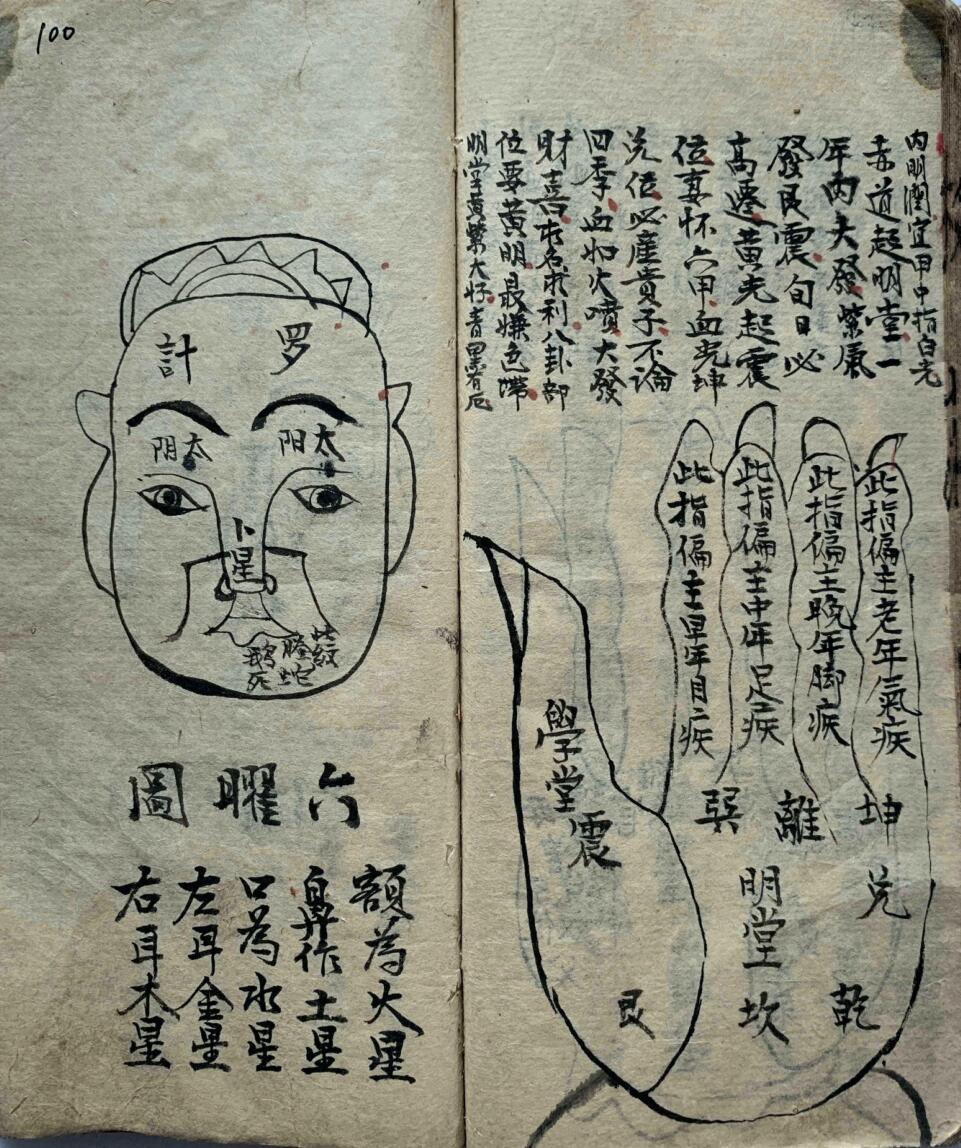 100
内明潤宜甲中指白光
赤道起明堂一
年内大發紫氣
發艮震旬日必
高遷黄光起震
位妻怀六甲血光坤
兑位必産貴子不論
四季血如火噴大發
財喜求名求利八卦部
位要黄明最嫌色滯
明堂黄紫大好青黑有厄
此指偏主老年氣疾
此指偏主晚年脚疾
此指偏主中年足疾
此指偏主早年目疾
坤
離
巽
兑
明堂
學堂
震
乾
坎
艮
罗
計
太阳
太阴
卜星
此紋
螣蛇
餓死
六曜圖
額為火星
鼻作土星
口為水星
左耳金星
右耳木星